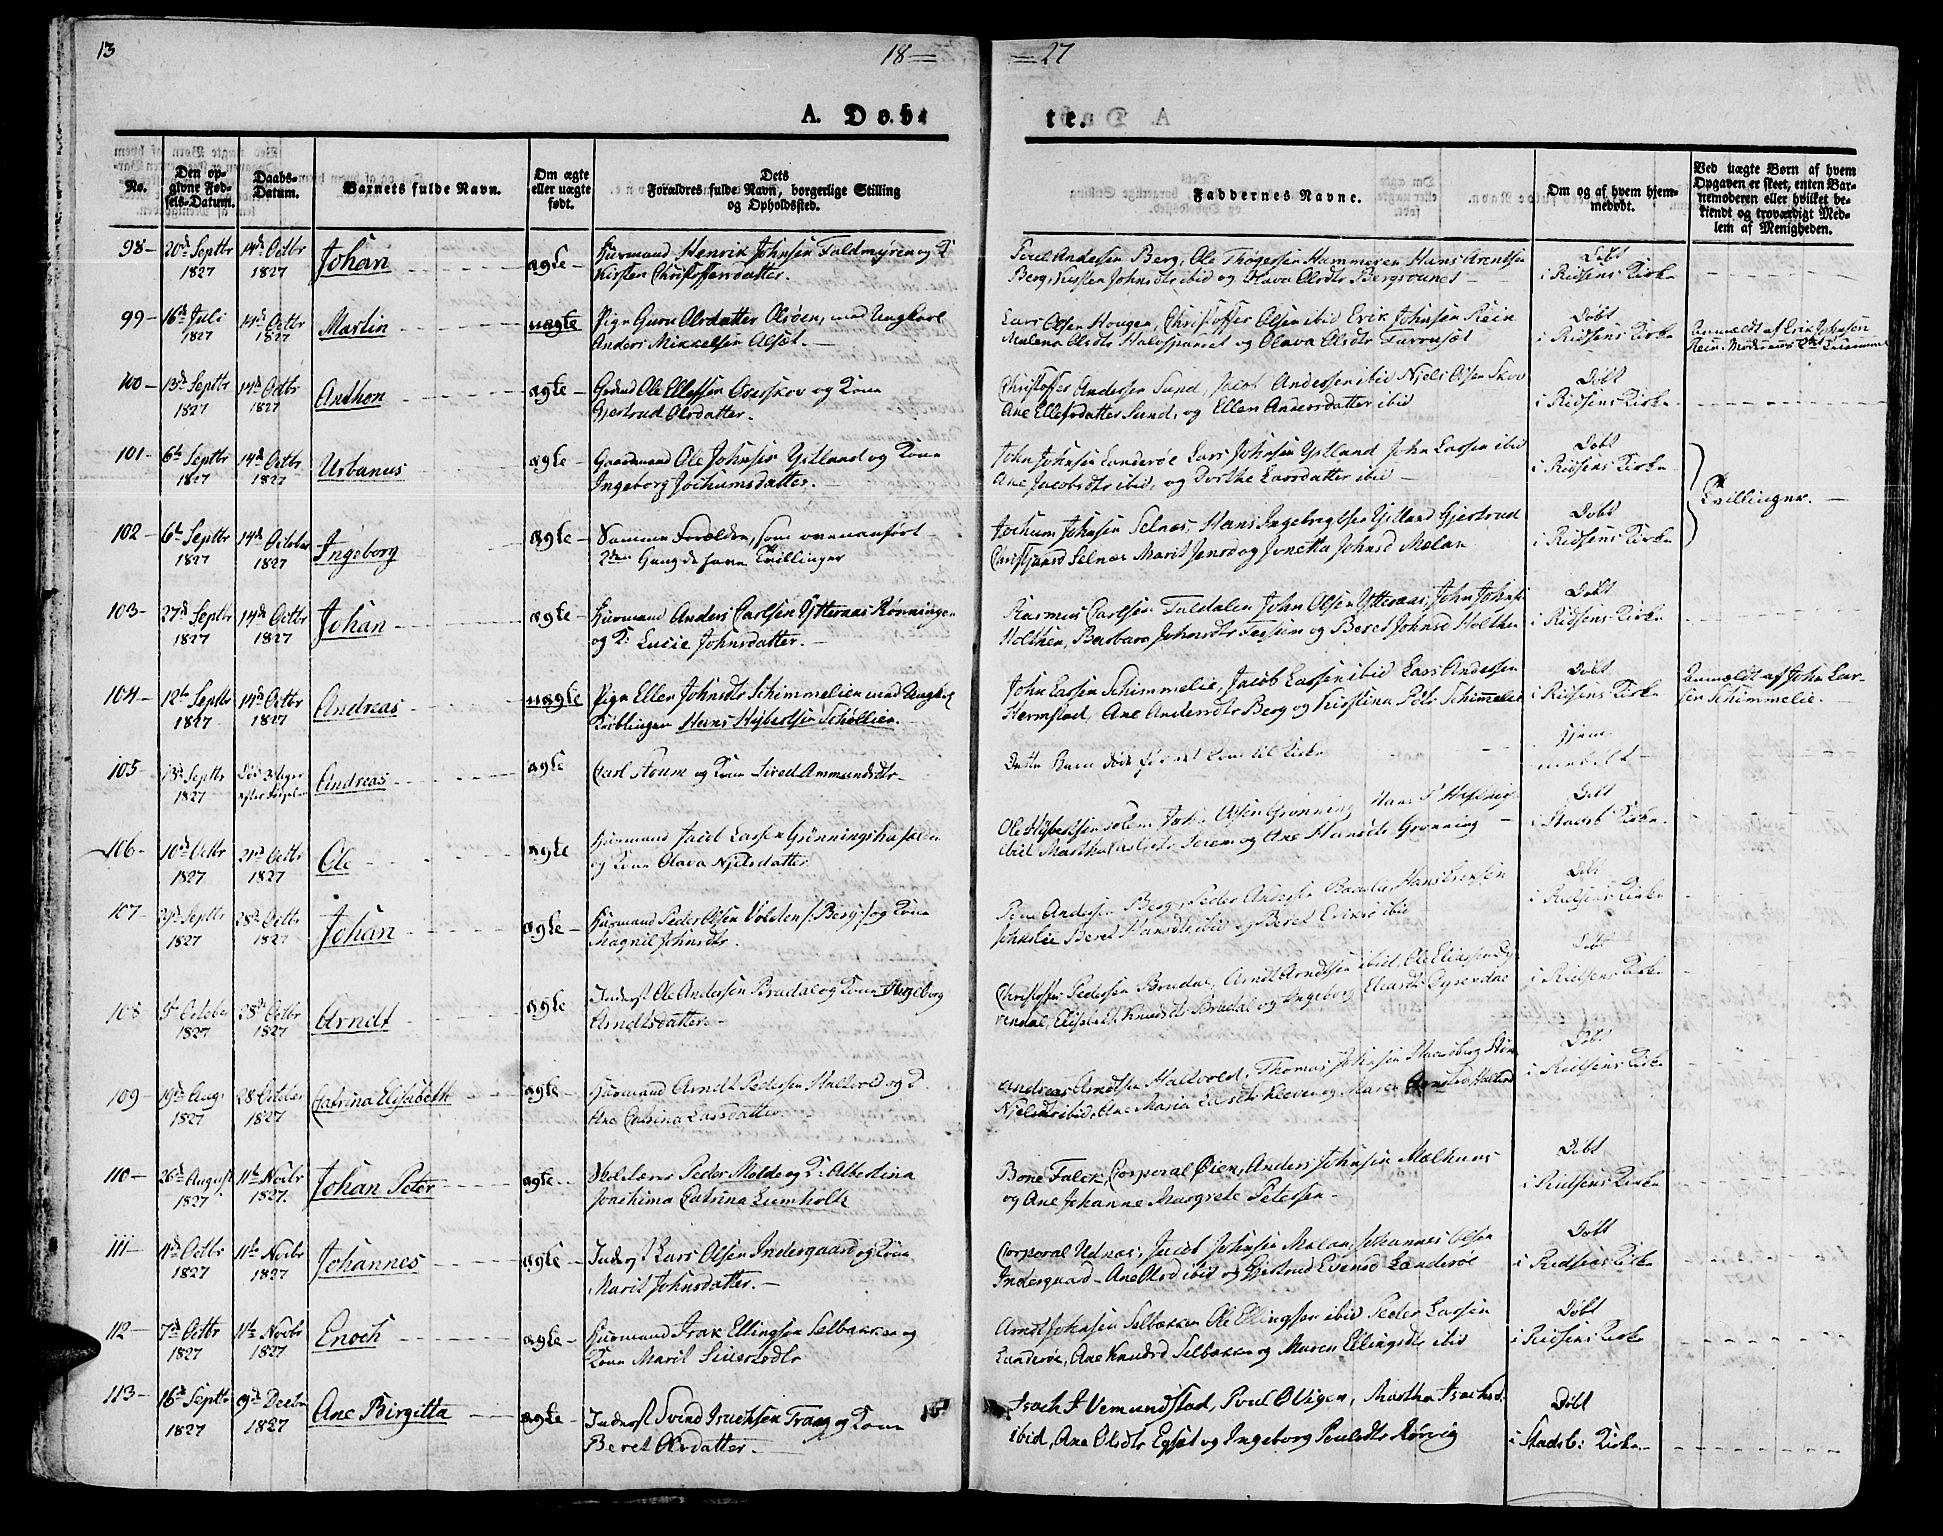 13
18 = = 27
A. Døbte.
No.
Den opgivne Fødsels-Datum.
Daabs-Datum.
Barnets fulde Navn.
Om ægte eller uægte født.
Dets Forældres fulde Navn, borgerlige Stilling og Opholdsted.
Faddernes Navne.
Om og af hvem hjemmedøbt.
Ved uægte Børn af hvem Opgaven er skeet, enten Barnemoderen eller hvilket bekiendt og troværdigt Medlem af Menigheden.
98- 20d Septbr 1827 14d Octbr 1827 Johan ægte
Huusmand Henrik Johnsen Faldmyren og K
Kirsten Christoffersdatter.
Poul Andersen Berg, Ole Thøgersen Hammeren Hans Arentsen
Berg, Kirsten Johnsdtr ibid og Olava Olsdtr Bergsaunet
Døbt
i Ridsens Kirke
99- 16d Juli 1827 14d Octbr 1827 Martin uægte
Pige Guru Olsdatter Olsøen, med Ungkarl
Anders Mikkelsen Alsæt.
Lars Olsen Hougen, Christoffer Olsen ibid Erik Johnsen Rein
Malena Olsdtr og Olava Olsdtr
Døbt
i Ridsens Kirke
Anmeldt af Erik Johnsen
Rein
100- 13d Septbr 1827 14d Octbr 1827 Anthon ægte
Gdmd Ole Ellefsen Overskov og Kone
Gjertrud Olsdatter.
Christoffer Andersen Sund, Jacob Andersen ibid Njels Olsen Skov
Ane Ellefsdatter Sund, og Ellen Andersdatter ibid
Døbt
i Ridsens Kirke
101- 6te Septbr 1827 14d Octbr 1827 Urbanus ægte
Gaardmand Ole Johnsen Ystland og Kone
Ingeborg Jochumsdatter.
John Johnsen Landerøe Lars Johnsen Ystland John Larsen ibid
Ane Jacobsdtr ibid, og Dorthe Larsdatter ibid
Døbt
i Ridsens Kirke
Tvillinger.
102 6te Septbr 1827 14d October 1827 Ingeborg ægte
Samme Forældre, som ovenanført
2den Gang de have Tvillinger
Jochum Johnsen Selnæs, Hans Ingebrigtsen Ystland Gjertrud
Selnæs Marit Jensd og Jonetta Johnsd Melan
Døbt
i Ridsens Kirke
103- 27d Septbr 1827 14d Octbr 1827 Johan ægte
Huusmand Anders Carlsen Ytteraas Rønningen
og K. Lucie Johnsdatter.
Rasmus Carlsen Faldalen John Olsen Ytteraas, John Johnsen
Holthen, Barbara Johnsdtr og Beret Johnsd Holthe
Døbt
i Ridsens Kirke
104- 12te Septbr 1827 14d Octbr 1827 Andreas uægte
Pige Ellen Johnsdtr Schimmelien med Ungkarl
Hans Schøllien.
John Larsen Schimmelie, Jacob Larsen ibid Lars Andersen
Hermstad, Ane Andersdtr Berg og Kirstina Pdtr Schimmelie
Døbt
i Ridsens Kirke
Anmeldt af John Larsen
Schimmelie.
105 13d Septbr 1827 Død 3 Uger efter Andreas ægte
Carl Roum og Kone Sired Ammundsdtr
Dette Barn døde før det kom til Kirke
hjem
106- 10d Octbr 1827 21d Octbr 1827 Ole ægte
Huusmand Jacob Larsen Grønningshasselen
og Kone Olava Njelsdatter
Olsen Grønning
ibid og Ane Hansdtr Grønning
Døbt
i Stadsb Kirke
107- 29d Septbr 1827 28d Octbr 1827 Johan ægte
Huusmand Peder Olsen Volden /: Berg :/ og Kone
Magnil Johnsdtr.
Andersen Berg, Peder Andersen
Beret Hansdtr ibid og Beret ibid
Døbt
i Ridsens Kirke
108 5t October 1827 28d Octbr 1827 Arndt ægte
Inderst Ole Andersen Prudal og Kone Ingeborg
Arndtsdatter.
Christoffer Pedersen Brudal, Arndt Arndtsen ibid, Ole Eliasen
Elisabeth Knudsdtr Brudal og Ingeborg Eliasdtr
Døbt
i Ridsens Kirke
109- 19d Aug. 1827 28 October 1827 Catrina Elisabeth ægte
Huusmand Arndt Pedersen Hallvold og K.
Ane Catrina Larsdatter
Andreas Arndtsen Hallvold, Thomas Johnsen
Njelsdtr ibid, Ane Maria Larsdtr Kleven og Maren
Døbt
i Ridsens Kirke
110- 26d August 1827 11te Novbr 1827. Johan Peter ægte
Skolelærer Peder Molde og K. Albertina
Joachima Catrina Lumholtz
Bone Falck, Corporal Øien, Anders Johnsen Mælhuus
og Ane Johanne Margrete Petersen
Døbt
i Ridsens Kirke
111- 11d Octbr 1827 11te Novbr 1827 Johannes ægte
Inderst Lars Olsen Indergaard og Kone
Marit Johnsdatter.
Corporal Udnæs, Jacob Johnsen Melan, Johannes Olsen
Indergaard Ane Olsd ibid og Gjertrud Evensd Landerøe
Døbt
i Ridsens Kirke
112 7d Octbr 1827 11te Novbr 1827 Enoch ægte
Huusmand Isak Ellingsen Selbækken og
Kone Marit Siversdtr
Arndt Johnsen Selbækken Ole Ellingsen ibid Peder Larsen
Landerøe, Ane Knudsd Selbækken og Maren Ellingsdtr ibid
Døbt
i Ridsens Kirke
113- 16d Septbr 1827 9d Decbr 1827 Ane Birgitta ægte
Inderst Svend Isachsen Trang og Kone
Beret Olsdatter.
Isach I Vemundstad, Poul O Vigen, Martha Isachsd.
ibid, Ane Olsdtr Egsæt og Ingeborg Poulsdtr Rørvig
Døbt
i Stadsb: Kirke